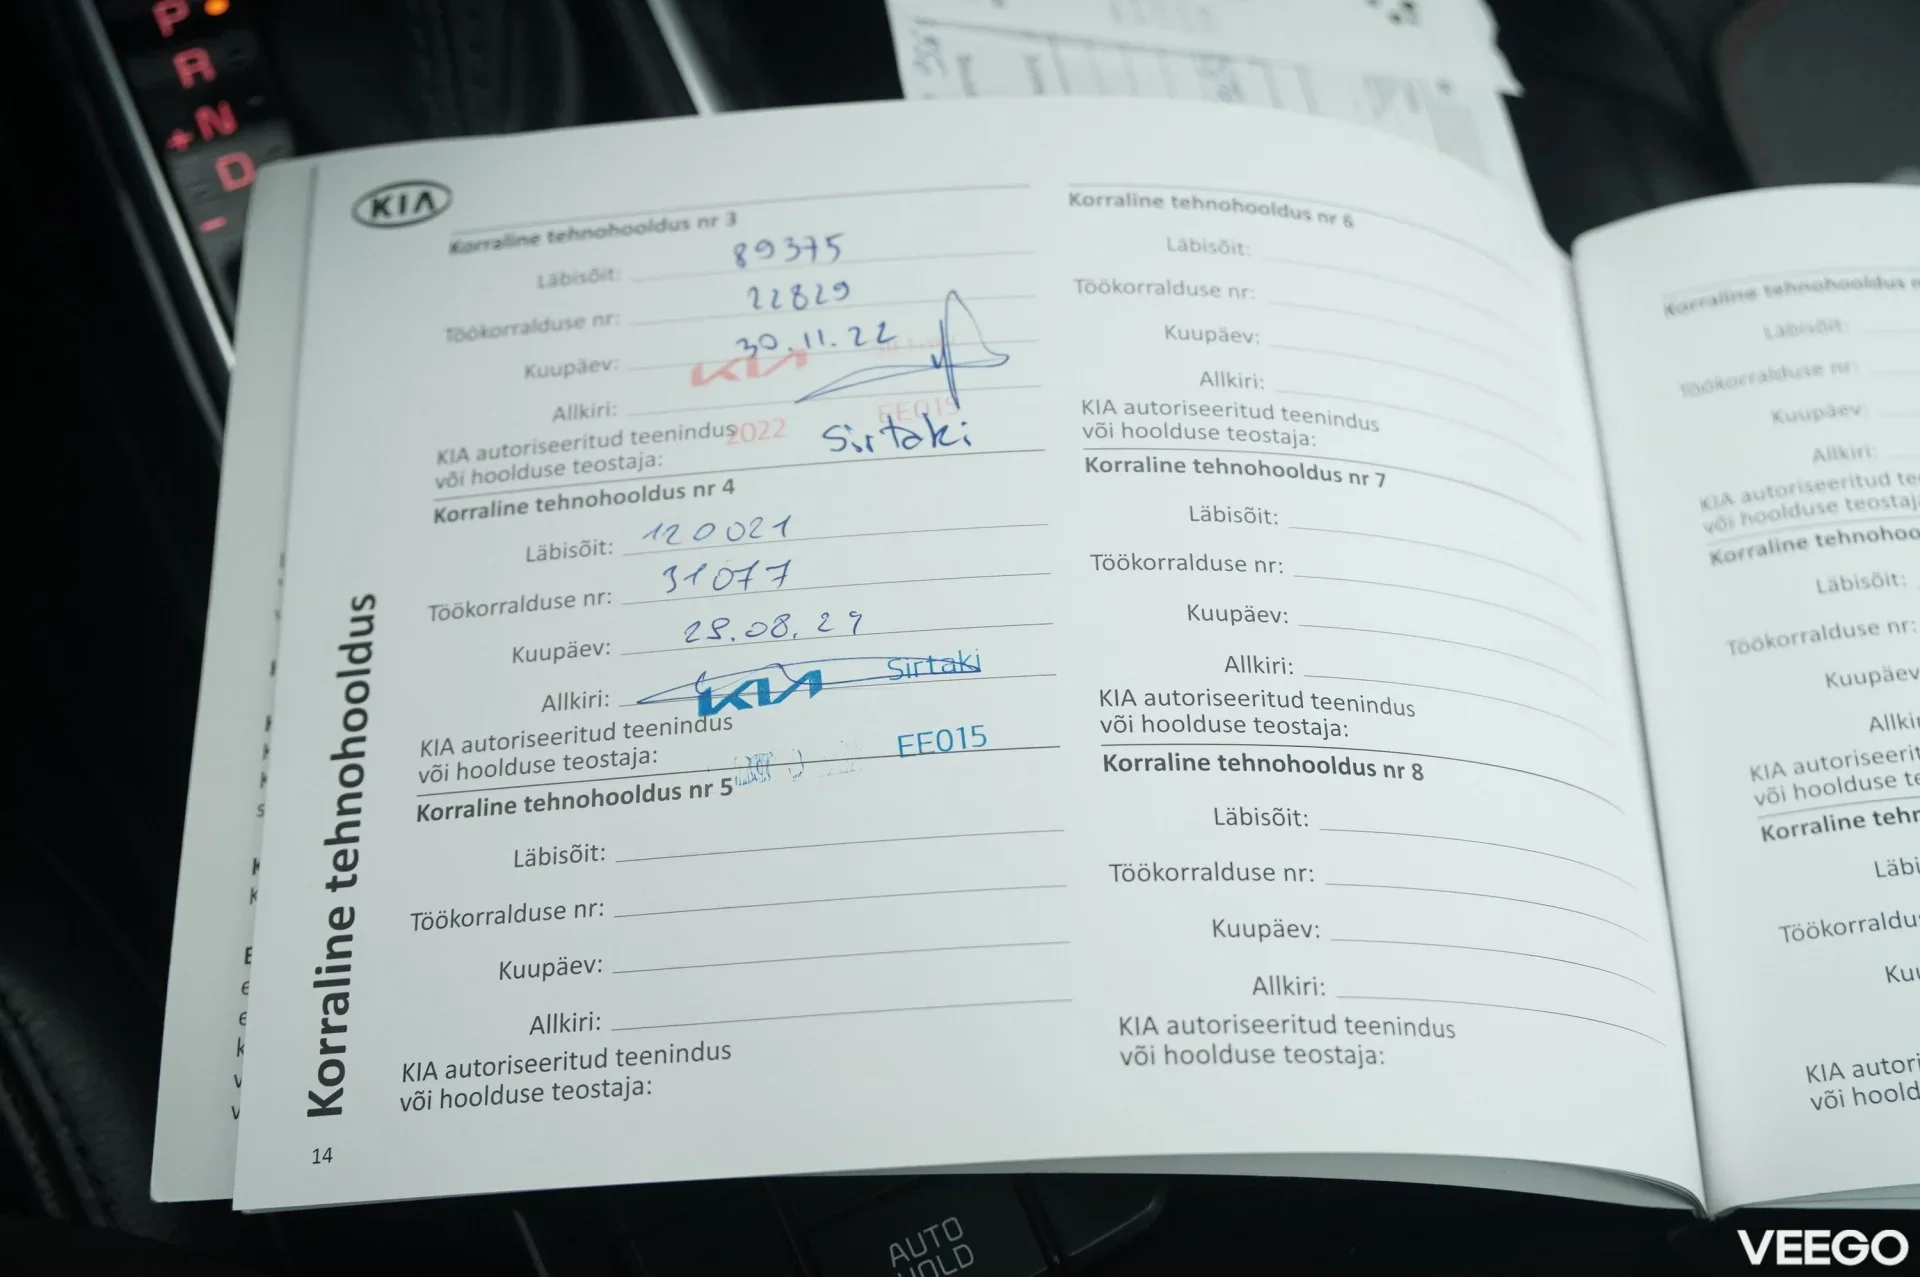 P
R
+ N
D
-
KIA
Korraline tehnohooldus nr 3
Läbisõit: 89375
Töökorralduse nr: 22829
Kuupäev: 30.11.22
KIA
Allkiri:
EE015
KIA autoriseeritud teenindus
2022
Sirtaki
või hoolduse teostaja:
Korraline tehnohooldus nr 4
Läbisõit: 120021
Töökorralduse nr: 31077
Kuupäev:
Allkiri:
KIA
Sirtaki
KIA autoriseeritud teenindus
või hoolduse teostaja:
EE015
Korraline tehnohooldus nr 5
Läbisõit:
Töökorralduse nr:
Kuupäev:
Allkiri:
KIA autoriseeritud teenindus
või hoolduse teostaja:
Korraline tehnohooldus
14
Korraline tehnohooldus nr 6
Läbisõit:
Töökorralduse nr:
Kuupäev:
Allkiri:
KIA autoriseeritud teenindus
või hoolduse teostaja:
Korraline tehnohooldus nr 7
Läbisõit:
Töökorralduse nr:
Kuupäev:
Allkiri:
KIA autoriseeritud teenindus
või hoolduse teostaja:
Korraline tehnohooldus nr 8
Läbisõit:
Töökorralduse nr:
Kuupäev:
Allkiri:
KIA autoriseeritud teenindus
või hoolduse teostaja:
Korraline tehnohooldus
Läbisõit:
Töökorralduse nr:
Kuupäev:
Allkiri:
KIA autoriseeritud te
või hoolduse teostaja
Korraline tehnohoo
Läbisõit:
Töökorralduse nr:
Kuupäev
Allkir
KIA autoriseerit
või hoolduse te
Korraline tehn
Läbi
Töökorraldu
Kuu
KIA autori
või hoold
AUTO
HOLD
VEEGO